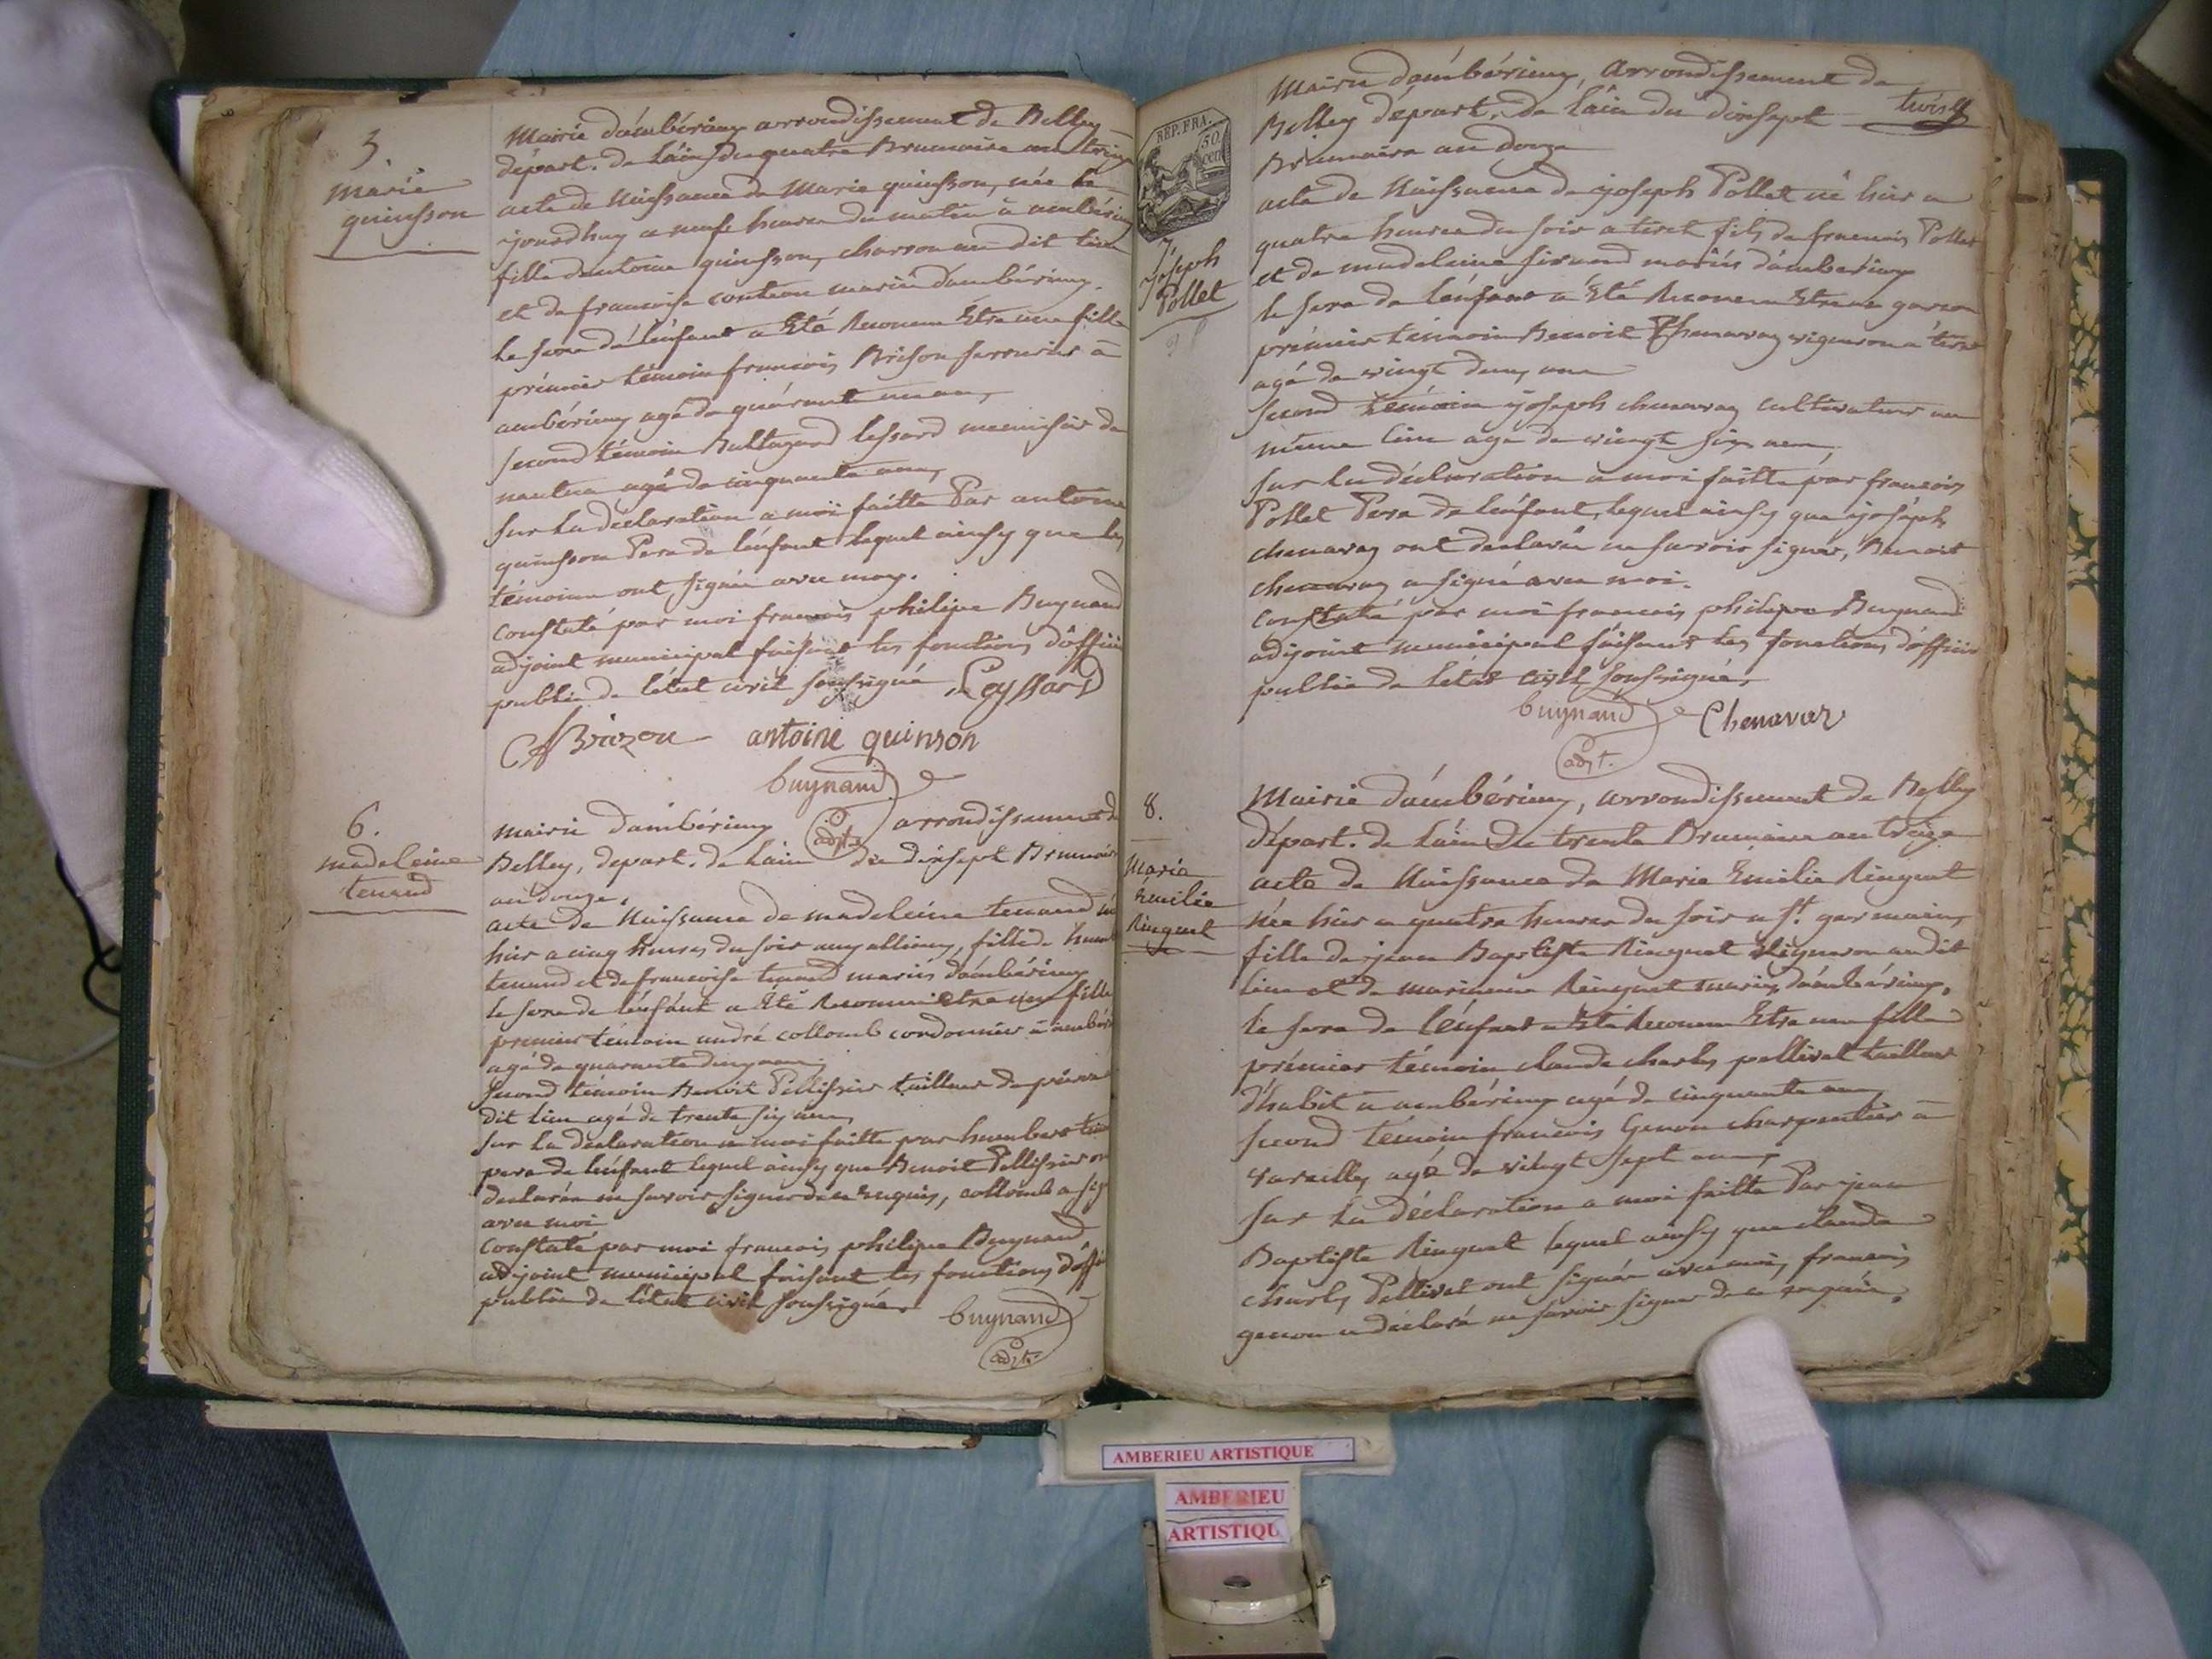 5.
marie
quinsson
Mairie d'ambérieux arrondissement de Belley
départ. de l'ain du quatre Brumaire an treize
acte de Naissance de Marie quinsson, née ce
jourdhuy a neufe heures du matin à ambérieux
fille dantoine quinsson, charron au dit lieu
et de francoise mariés d'ambérieux.
le sexe de l'énfant a été Reconnu Etre une fille
prémier témoin francois Brison serrurier à
ambérieux agé de quarante un ans,
second témoin Baltazard menuisier de
nantua agé de cinquante ans,
sur la déclaration a moi faitte Par antoine
quinsson Pere de l'énfant lequel ainsy que les
témoins ont signés avec moy.
Constaté par moi francois philipe Buynand
adjoint municipal faisant les fonctions d'officier
public de l'état civil soussigné Leyssard
Brizon antoine quinson
buynand
adjt.
6.
madeleine
tenand
mairie d'ambérieux arrondissement de
Belley, depart. de l'ain du dixsept Brumaire
an douze,
acte de Naissance de madeleine tenand née
hier a cinq heures du soir aux allieux, fille de humbert
tenand et de francoise tenand mariés d'ambérieux
le sexe de l'énfant a été Reconnu etre une fille
premier témoin andré collomb cordonnier à ambérieux
agé de quarante deux ans,
second témoin Benoit Pellissier tailleur de pierre
dit lieu agé de trente six ans,
sur la déclaration a moi faitte par humbert tenand
pere de l'énfant lequel ainsy que Benoit Pellissier ont
declarés ne savoir signer de ce Requis, collomb a signé
avec moi
Constaté par moi francois philipe Buynand
adjoint municipal faisant les fonctions d'officier
public de l'état civil soussigné.
buynand
adjt.
REP. FRA.
50
cen
trois
Mairie d'ambérieux, Arrondissement de
Belley départ. de l'ain du dixsept
Brumaire an douze
7.
Joseph
Pollet
acte de Naissance de joseph Pollet né hier a
quatre heures du soir a tiret fils de francois Pollet
et de madeleine mariés d'ambérieux
le sexe de l'énfant a été Reconnu Etre un garcon
prémier témoin Benoit Chenavaz vigneron a tiret
agé de vingt deux ans
second témoin joseph chenavaz cultivateur au
même lieu agé de vingt six ans,
sur la déclaration a moi faitte par francois
Pollet Pere de l'énfant, lequel ainsy que joseph
chenavaz ont declarés ne savoir signer, Benoit
chenavaz a signé avec moi.
Constaté par moi francois philipe Buynand
adjoint municipal faisant les fonctions d'officier
public de l'état civil soussigné,
buynand Chenavaz
adjt.
8.
Maria
Emilie
Ringuet
Mairie d'ambérieux, arrondissement de Belley
départ. de l'ain du trente Brumaire an treize
acte de Naissance de Marie Emilie Ringuet
née hier a quatre heures du soir a St. germain,
fille de jean Baptiste Ringuet Vigneron au dit
lieu et de marianne Ringuet mariés d'ambérieux,
le sexe de l'énfant a été Reconnu Etre une fille
prémier témoin claude charles pellivet tailleur
d'habit a ambérieux agé de cinquante ans,
second témoin francois Genon charpentier à
vareilles agé de vingt sept ans,
sur la déclaration a moi faitte Par jean
Baptiste Ringuet lequel ainsy que claude
charles Pellivet ont signés avec moi, francois
genon a déclaré ne savoir signer de ce requis.
AMBERIEU ARTISTIQUE
AMBERIEU
ARTISTIQU